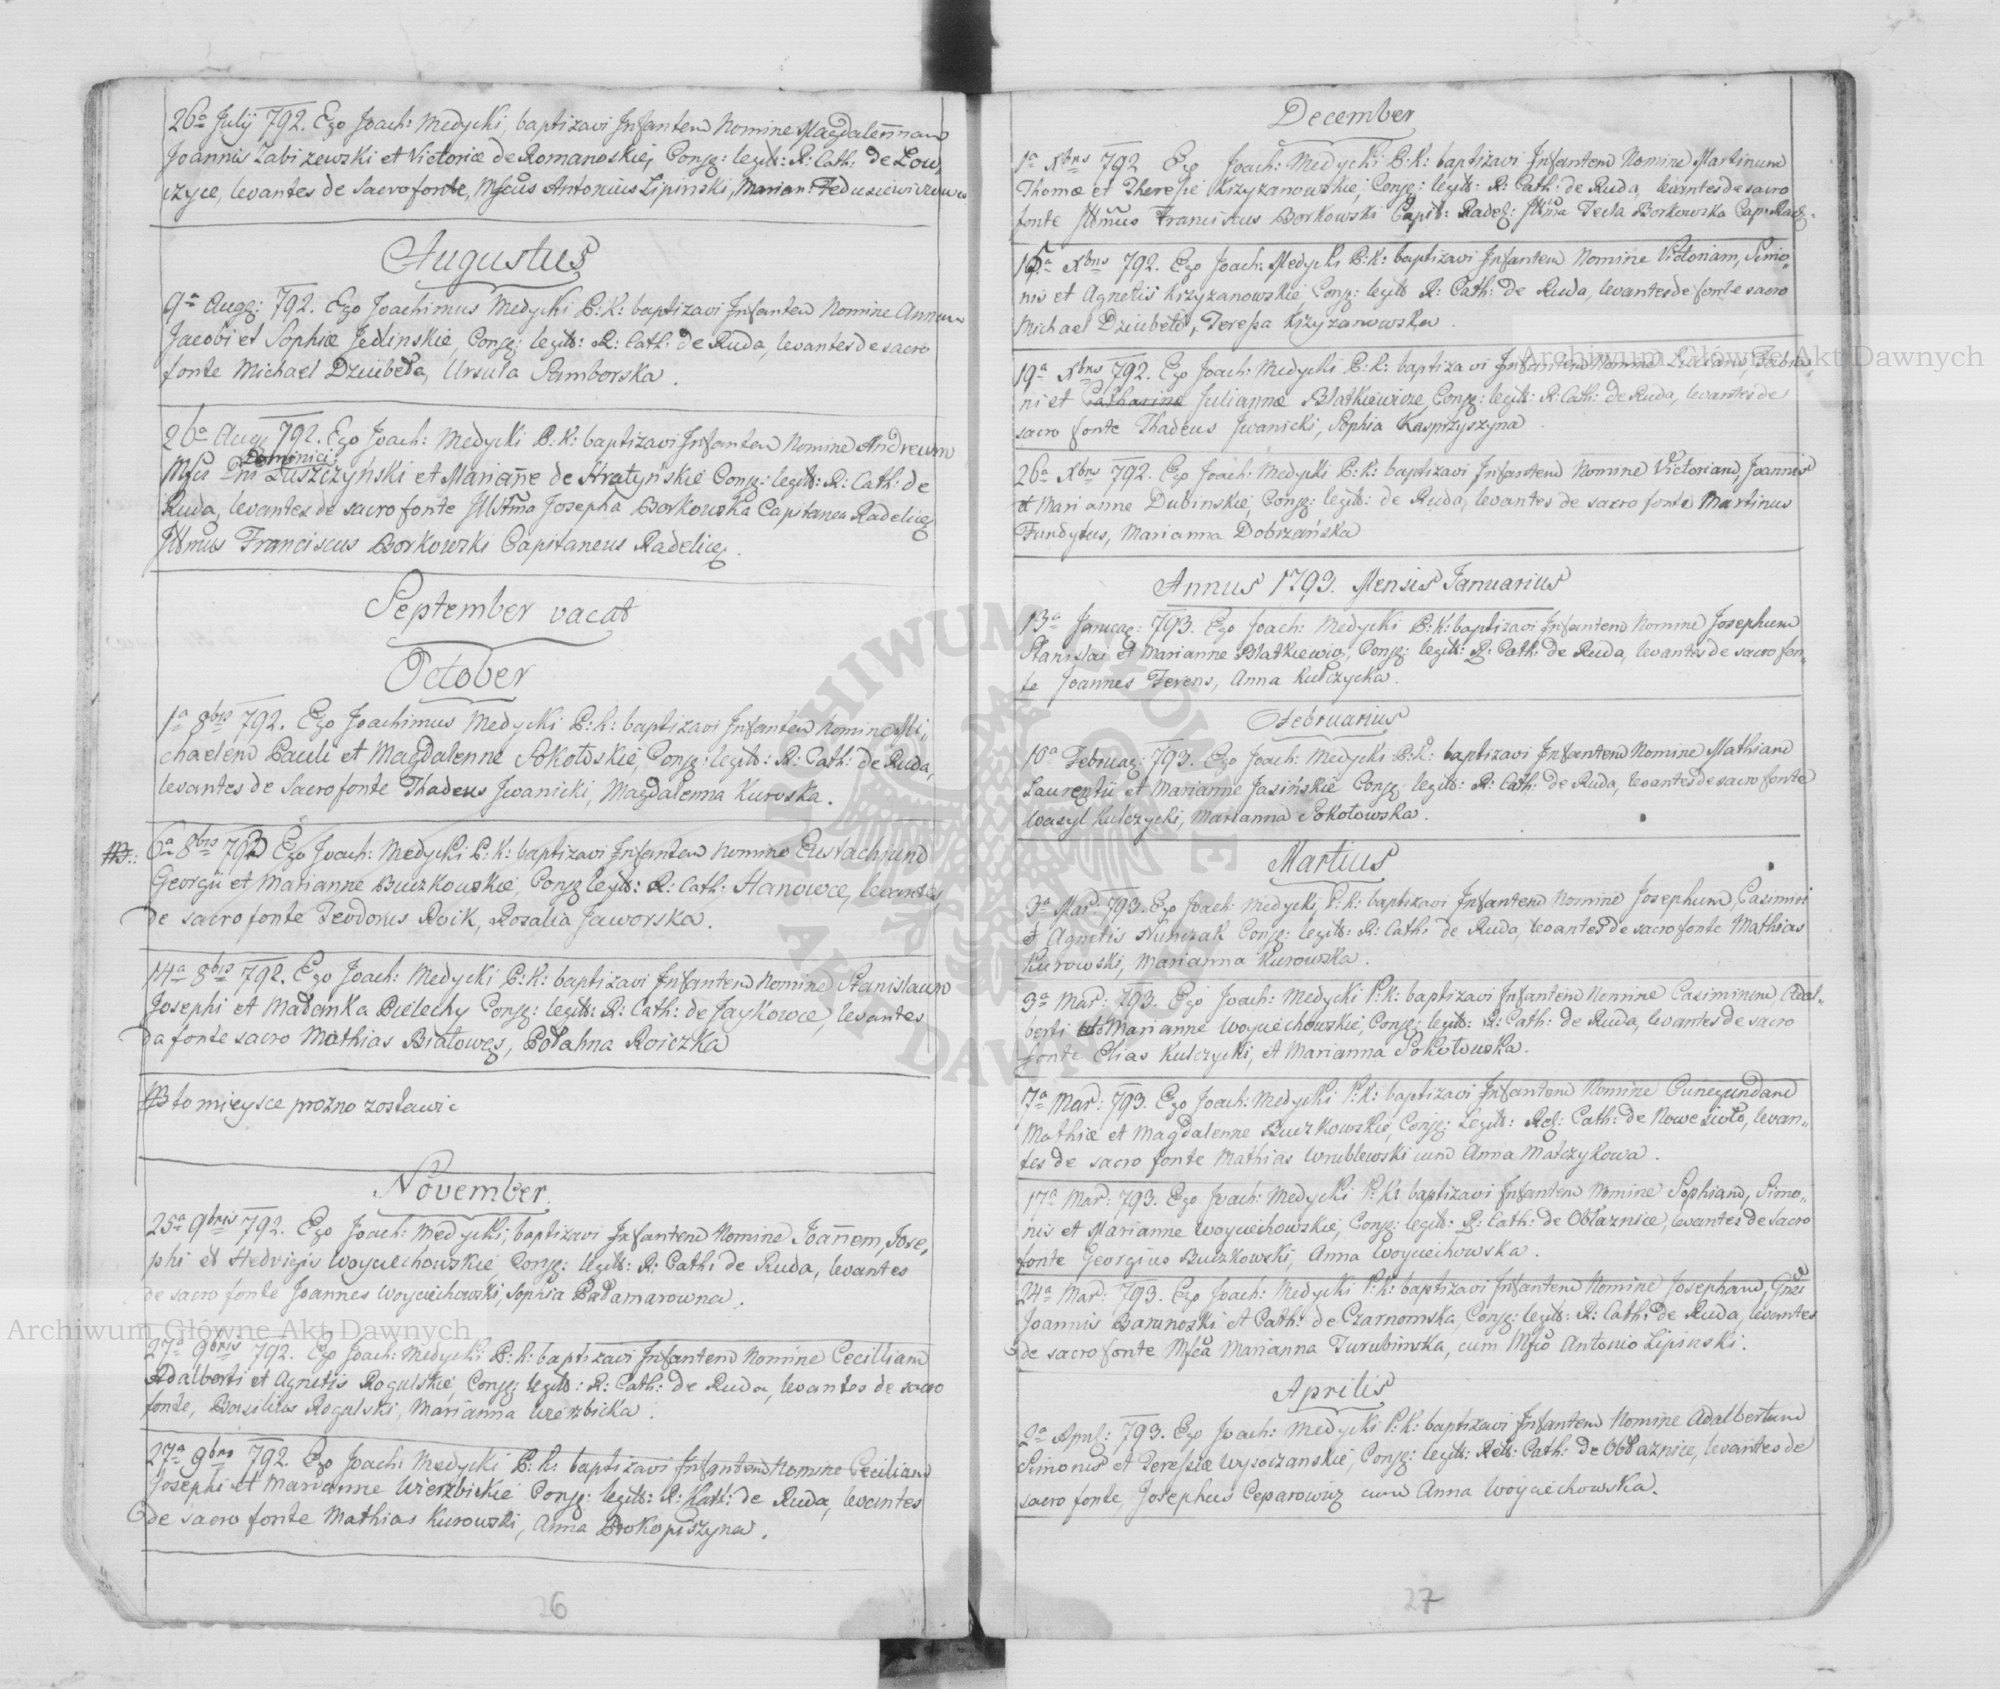 26a Julij 792. Ego Joach: Medycki, baptizavi Infantem Nomine Magdalennam
Joannis Zabizewski et Victoriæ de Romanoskiej Conjg: legit: R: Cath: de Low,
czyce, levantes de Sacro fonte, Mgcus Antonius Lipinski, Marian: Fedusiewiczowa
Augustus
9a Augg: 792. Ego Joachimus Medycki P: K: baptizavi Infantem Nomine Annam
Jacobi et Sophiæ Jedlinskie, Conjg: legit: R: Cath: de Ruda, levantes de sacro
fonte Michael Dziubeła, Ursula Samborska.
26a Augg 792. Ego Joach: Medycki P: K: baptizavi Infantem Nomine Andream
Dominici
Mfci Dni Łuszczyński et Marianne de Stratyńskie Conjg: legit: R: Cath: de
Ruda, levantes de sacro fonte Jllstma Josepha Borkowska Capitanea Radelicg
Jllmus Franciscus Borkowski Capitaneus Radelicg.
September vacat
October
1a 8bris 792. Ego Joachimus Medycki P: K: baptizavi Infantem Nomine Mi,,
chaelem Pauli et Magdalenne Sokołoskie, Conjg: legit: R: Cath: de Ruda,
levantes de Sacro fonte Thadeus Jwanicki, Magdalenna Kuroska.
NB: 6a 8bris 792 Ego Joach: Medycki P: K: baptizavi Infantem Nomine Eustachium
Georgii et Marianne Buczkowskie, Conjg legit: R: Cath: Hanowce, levantes
de sacro fonte Teodorus Roik, Rosalia Jaworska.
14a 8bris 792. Ego Joach: Medycki P: K: baptizavi Infantem Nomine Stanislaum
Josephi et Madeinka Bielechy Conjg: legit: R: Cath: de Jaykowce, levantes
da fonte sacro Mathias Białowęs, Połahna Roiczka
NB to mieysce prozno zostawić
November
25a 9bris 792. Ego Joach: Medycki, baptizavi Infantem Nomine Joannem, Jose,
phi et Hedvigis Woyciechowskie Conjg: legit: R: Cath: de Ruda, levantes
de sacro fonte Joannes Woyciechowski, Sophia Padamarowna.
27a 9bris 792. Ego Joach: Medycki P: K: baptizavi Infantem Nomine Cecilliam
Adalberti et Agnetis Rogulskie, Conjg: legit: R: Cath: de Ruda, levantes de sacro
fonte, Basilius Rogulski, Marianna Wierzbicka.
27a 9bris 792. Ego Joach: Medycki P: K: baptizavi Infantem Nomine Ceciliam
Josephi et Marianne Wierzbickie Conjg: legit: R: Kath: de Ruda, levantes
de sacro fonte Mathias Kurowski, Anna Prokopiszyna.
26
December
1a Xbris 792 Ego Joach: Medycki P: K: baptizavi Infantem Nomine Martinum
Thomæ et Theresie Krzyzanowskie, Conjg: legit: R: Cath: de Ruda, levantes de sacro
fonte Jllmus Franciscus Borkowski Capit: Radeg: Jllma Tecla Borkowska Cap: Radg.
15a Xbris 792. Ego Joach: Medycki P: K: baptizavi Infantem Nomine Victoriam, Simo,,
nis et Agnetis Krzyzanowskie Conjg: legit R: Cath: de Ruda, levantes de fonte sacro
Michael Dziubełł, Teressa Krzyzanowska.
19a Xbris 792. Ego Joach: Medycki P: K: baptizavi Infantem Nomine
ni et Catharina Julianna Blatkiewicze Conjg: legit: R: Cath: de Ruda, levantes de
sacro fonte Thadeus Jwanicki, Sophia Kasprzyszyna.
26a Xbris 792. Ego Joach: Medycki P: K: baptizavi Infantem Nomine Victoriam, Joannis
et Marianne Dubinskie, Conjg: legit: de Ruda, levantes de sacro fonte Martinus
Fundytus, Marianna Dobrzańska
Annus 1793. Mensis Januarius
13a Januag: 793. Ego Joach: Medycki P: K: baptizavi Infantem Nomine Josephum
Stanislai et Marianne Blatkiewicz, Conjg: legit: R: Cath: de Ruda, levantes de sacro fon,,
te Joannes Ferens, Anna Kulczycka.
Februarius
10a Februag: 793. Ego Joach: Medycki P: K: baptizavi Infantem Nomine Mathiam
Laurentii et Marianne Jasińskie Conjg: legit: R: Cath: de Ruda, levantes de sacro fonte
Wasyl Kulczycki, Marianna Sokołowska.
Martius
3a Mar: 793. Ego Joach: Medycki P: K: baptizavi Infantem Nomine Josephum, Casimiri
et Agnetis Nunczak Conjg: legit: R: Cath: de Ruda, levantes de sacro fonte Mathias
Kurowski, Marianna Kurowska.
3a Mar: 793. Ego Joach: Medycki P: K: baptizavi Infantem Nomine Casimirum, Adal,,
berti et Marianne Woyciechowskie, Conjg: legit: R: Cath: de Ruda, levantes de sacro
fonte Elias Kulczycki, et Marianna Sokołowska.
7a Mar: 793. Ego Joach: Medycki P: K: baptizavi Infantem Nomine Cunegundam
Mathiæ et Magdalenne Buczkowskie, Conjg: Legit: Rg: Cath: de Nowe Sioło, levan,,
tes de sacro fonte Mathias Wrublewski cum Anna Małczykowa.
17a Mar: 793. Ego Joach: Medycki P: K: baptizavi Infantem Nomine Sophiam, Simo,,
nis et Marianne Woyciechowskie, Conjg: legit: R: Cath: de Obłaznice, levantes de Sacro
fonte Georgius Buczkowski, Anna Woyciechowska.
24a Mar: 793. Ego Joach: Medycki P: K: baptizavi Infantem Nomine Josepham,
Joannis Baranoski et Cath: de Czarnomska, Conjg: legit: R: Cath: de Ruda, levantes
de sacro fonte Mfca Marianna Turubinska, cum Mfco Antonio Lipinski.
Aprilis
2a April: 793. Ego Joach: Medycki P: K: baptizavi Infantem Nomine Adalbertum
Simonis et Teressiæ Wysoczanskie, Conjg: legit: Rit: Cath: de Obłaznice, levantes de
sacro fonte, Josephus Ceparowicz cum Anna Woyciechowska.
27
Archiwum Główne Akt Dawnych
Archiwum Główne Akt Dawnych
ARCHIWUM GŁÓWNE AKT DAWNYCH